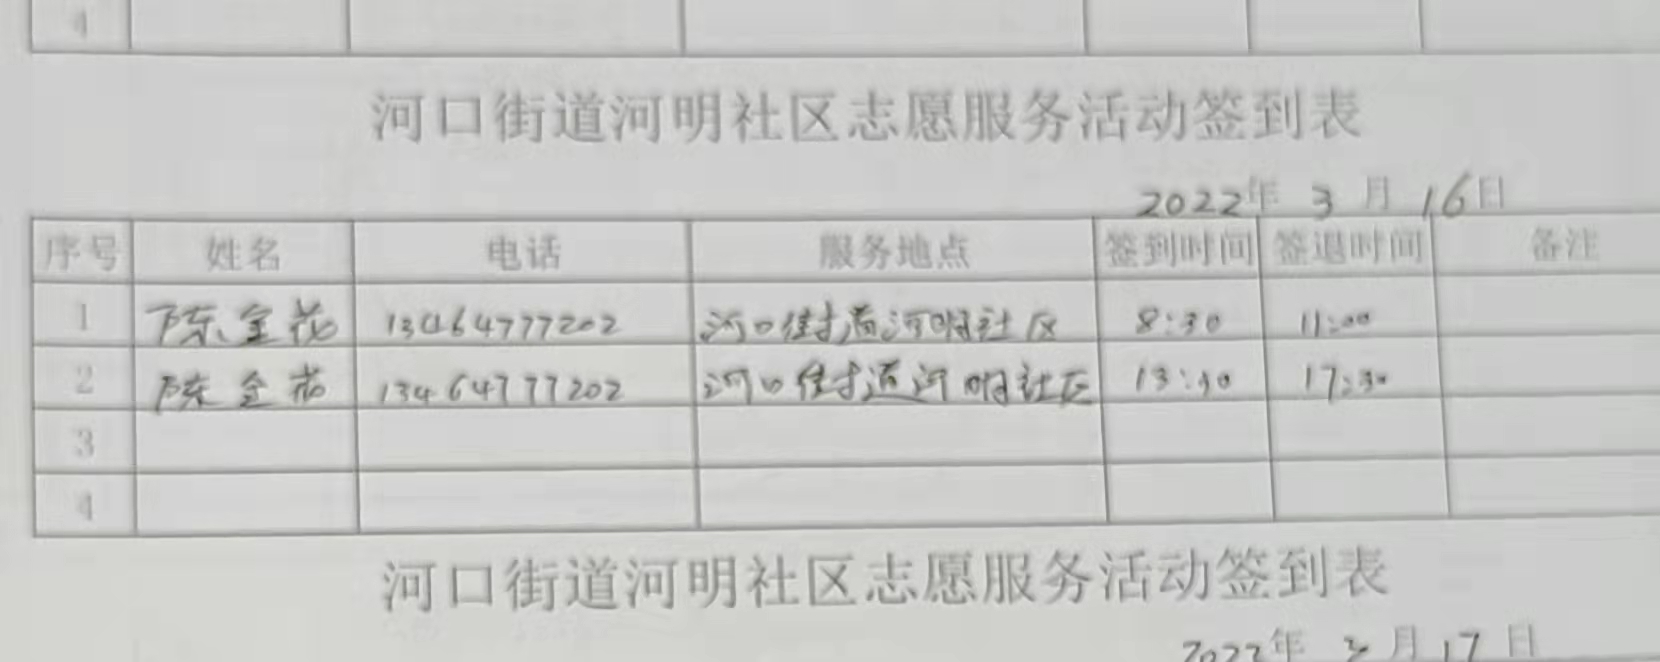 4
河口街道河明社区志愿服务活动签到表
2022年 3 月 16日
序号 姓名 电话 服务地点 签到时间 签退时间 备注
1 陈金花 13464777202 河口街道河明社区 8:30 11:00
2 陈金花 13464777202 河口街道河明社区 13:30 17:30
3
4
河口街道河明社区志愿服务活动签到表
2022年 3 月 17 日